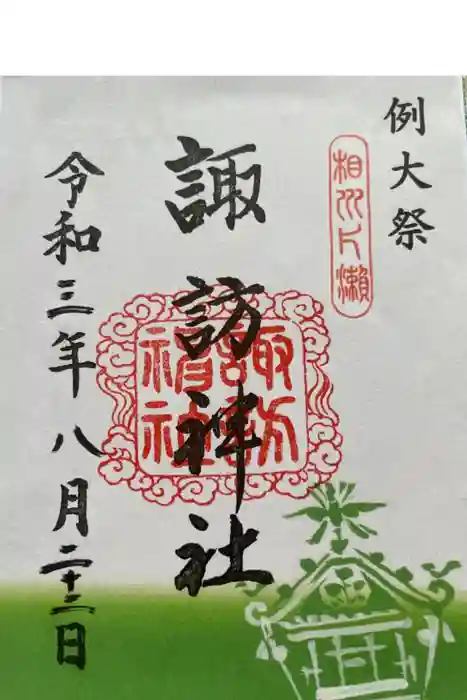 例大祭
相州片瀬
諏訪神社
諏訪神社
令和三年八月二十三日